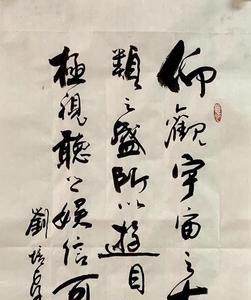 仰觀宇宙之大
類之盛所以遊目
極視聽之娛信可
劉培